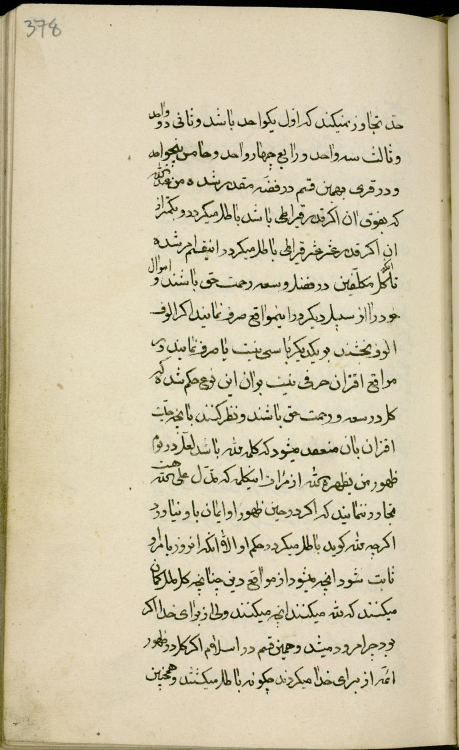 378
حد تجاوز نمیکند که اول یکواحد باشد و ثانی دو واحد
و ثالث سه واحد و رابع چهار واحد و خامس پنجواحد
و در قری بهمین قسم در فضه مقدر شده من عند الله
که بفوق ان اگر قدر قیراطی باشد باطل میگردد و بکمتر از
ان اگر قدر عشر عشر قیراطی باطل میگردد اینقسم امر شده
تا انکه کل مکلفین در فضل و سعه رحمت حق باشند و اموال
خود را از سبیل دیگر در این مواقع صرف نمایند اگر الوف
الوف بخشند بیکدیگر باسی نیست یا صرف نمایند در
مواقع اقران حرفی نیست بر ان این نوع حکم شده که
کل در سعه و رحمت حق باشند و نظر کنند بانچه جهت
اقران بان منعقد میشود که کلمه لله باشد لعل در یوم
ظهور من یظهره الله از مراد اینکلمه که یدل علی الله هست
تجاوز ننمایند که اگر در حین ظهور او ایمان باو نیاورد
اگرچه لله گوید باطل میگردد حکم او الا انکه انروز بامر او
ثابت شود انچه میشود از مواقع دین چنانچه کل ملل گمان
میکنند که لله میکنند انچه میکنند ولی از برای خدا اگر
بود چرا مردود میشد و همین قسم در اسلام اگر کل در ظهور
ائمه از برای خدا میکردند چگونه باطل میگشتند و همچنین